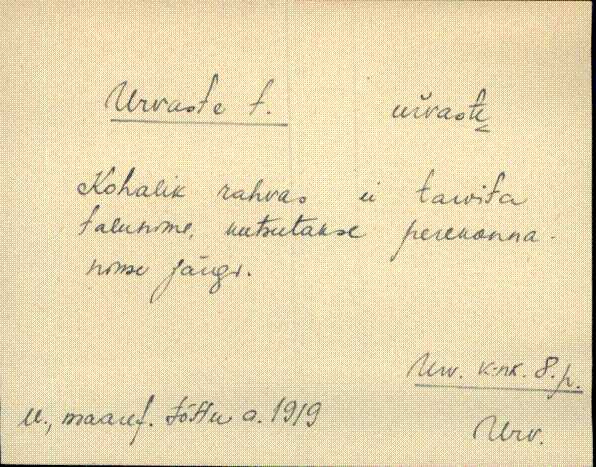 Urvaste t. urvaste
Kohalik rahvas ei tarvita
talunime, kutsutakse perekonna-
nime järgi.
Urv. k-nk. 8. p.
U., maaref. tõttu a. 1919
Urv.